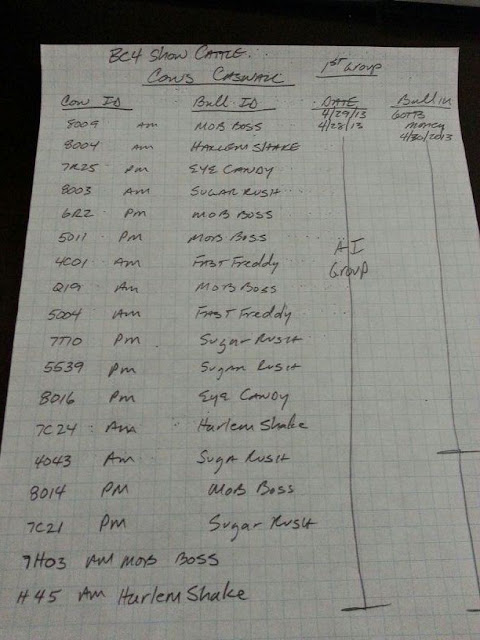 BC4 Show CATTLE.
Cows
1ST Group
Cow ID Bull ID DATE Bull in
4/29/13 GOTTB
8009 Am MOB BOSS 4/28/13 MONEY
8004 Am HARLEM SHAKE 4/30/2013
7R25 Pm EYE CANDY
8003 Am SUGAR RUSH
6R2 Pm MOB BOSS
5011 Pm MOB BOSS
4C01 Am FAST Freddy AI
Q19 Am MOB BOSS Group
5004 Am FAST Freddy
7T10 Pm Sugar RUSH
5539 Pm Sugar RUSH
8016 Pm EyE CANDY
7C24 Am Harlem Shake
4043 Am SugA RUSH
8014 PM MOB BOSS
7C21 Pm Sugar RUSH
7H03 AM MOB BOSS
H45 Am Harlem Shake